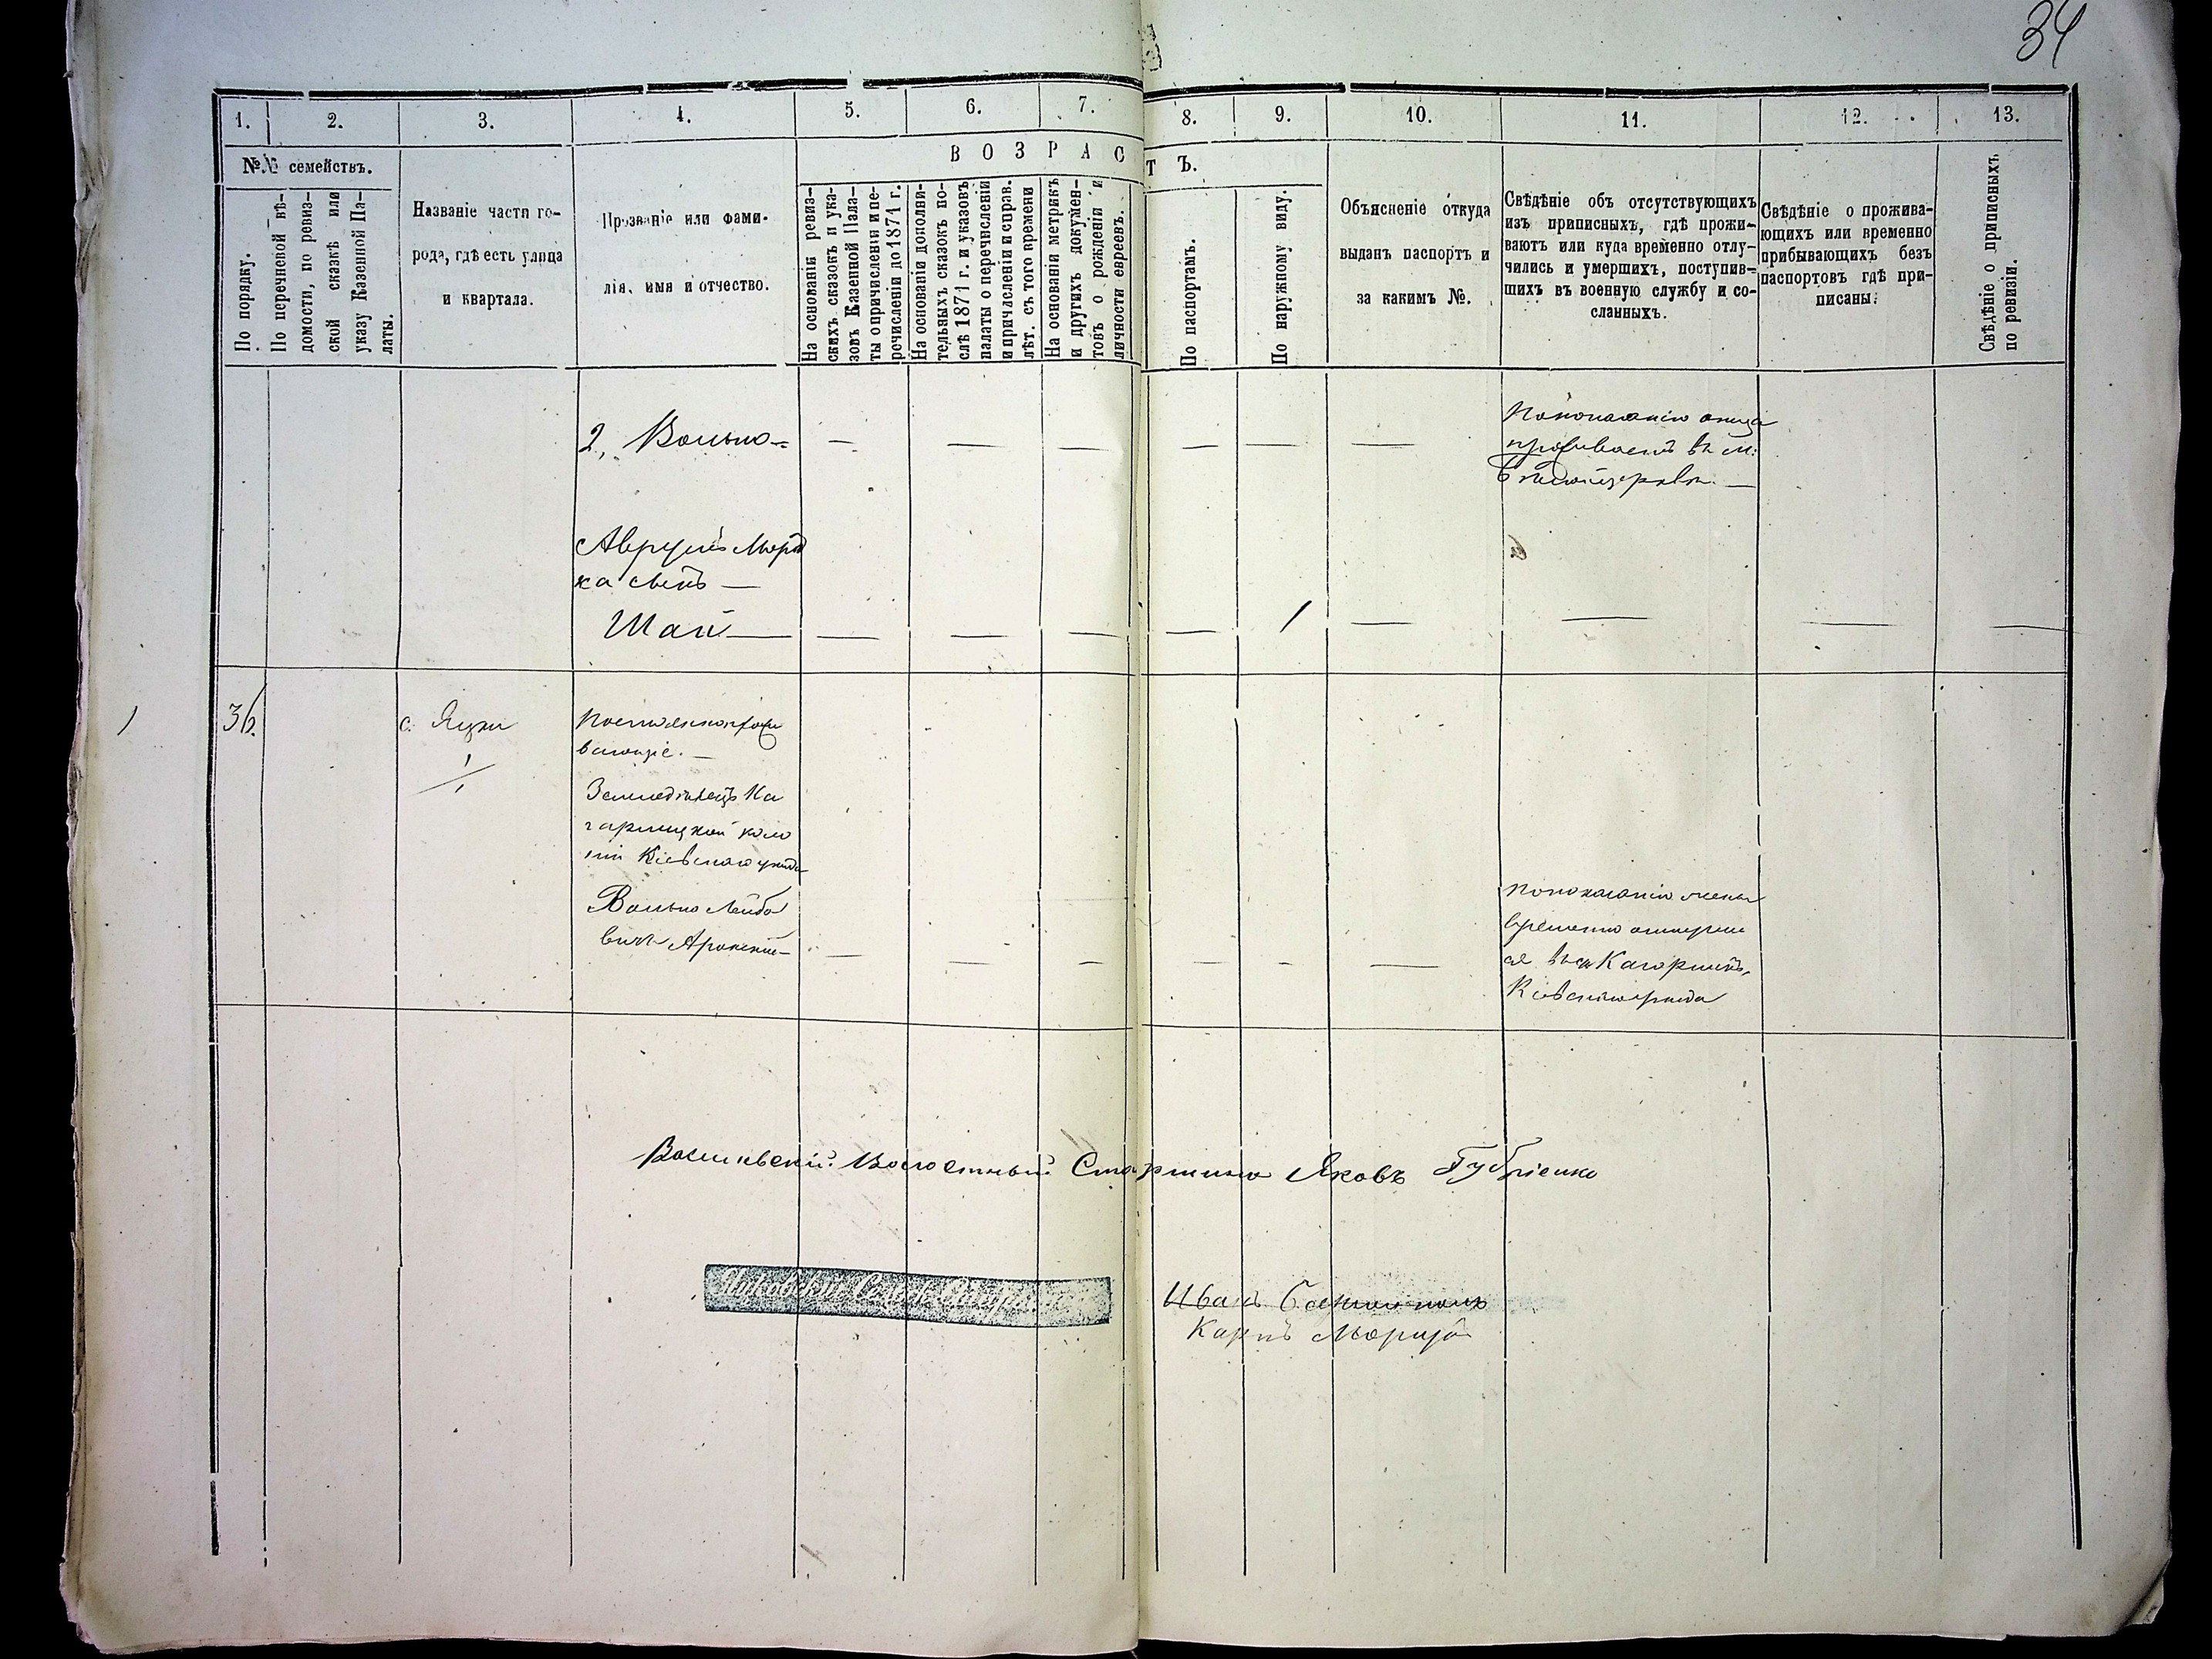 34
1. 2. 3. 4. 5. 6. 7. 8. 9. 10. 11. 12. 13.
№№ семействъ.
В О З Р А С Т Ъ.
По порядку.
По перечневой вѣ-
домости, по ревиз-
ской сказкѣ или
указу Казенной Па-
латы.
Названіе части го-
рода, гдѣ есть улица
и квартала.
Прозваніе или фами-
лія, имя и отчество.
На основаніи ревиз-
скихъ сказокъ и ука-
зовъ Казенной Пала-
ты о причисленіи и пе-
речисленіи до 1871 г.
На основаніи дополни-
тельныхъ сказокъ по-
слѣ 1871 г. и указовъ
палаты о перечисленіи
и причисленіи и справ.
лѣт. съ того времени
На основаніи метрикъ
и другихъ докумен-
товъ о рожденіи и
личности евреевъ.
По паспортамъ.
По наружному виду.
Объясненіе откуда
выданъ паспортъ и
за какимъ №.
Свѣдѣніе объ отсутствующихъ
изъ приписныхъ, гдѣ прожи-
ваютъ или куда временно отлу-
чились и умершихъ, поступив-
шихъ въ военную службу и со-
сланныхъ.
Свѣдѣніе о прожива-
ющихъ или временно
прибывающихъ безъ
паспортовъ гдѣ при-
писаны.
Свѣдѣніе о приписныхъ
по ревизіи.
2, Волько — — — — — — Попоказанію отца
проживаетъ въ м.
Бѣлойцеркви. —
Аврумъ Морд
ка сынъ —
Шай — — — — — 1 — — — —
1
36. с. Яцки Постоянопрожи
вающіе. —
1/1
Земледѣлецъ Ка
гарлицкой коло
ніи Кіевскаго уѣзда
Волько Лейбо
вичъ Аронскій — — — — — — —
Попоказанію жены
временно отлучил
ся въ Кагарлыкъ,
Кіевскаго уѣзда
Волостный Старшина Яковъ Губріенко
Яцковскій Сельск. Староста
Иванъ
Карпъ